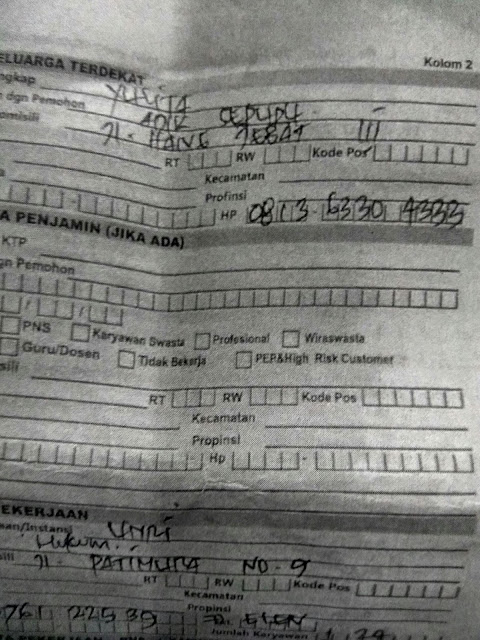 Kolom 2
ELUARGA TERDEKAT
ngkap YULITA
n dgn Pemohon ADIK SEPUPU
omisili Jl. HANG JEBAT III
RT RW Kode Pos
Kecamatan
Profinsi
HP 0813-6330 4333
A PENJAMIN (JIKA ADA)
KTP
gn Pemohon
PNS Karyawan Swasta Profesional Wiraswasta
Guru/Dosen Tidak Bekerja PEP&High Risk Customer
sili
RT RW Kode Pos
Kecamatan
Propinsi
Hp -
EKERJAAN
aan/Instansi UNRI
Hukum
sili Jl. PATIMURA NO. 9
RT RW Kode Pos
Kecamatan
Propinsi
0761 22539
Jumlah Karyawan